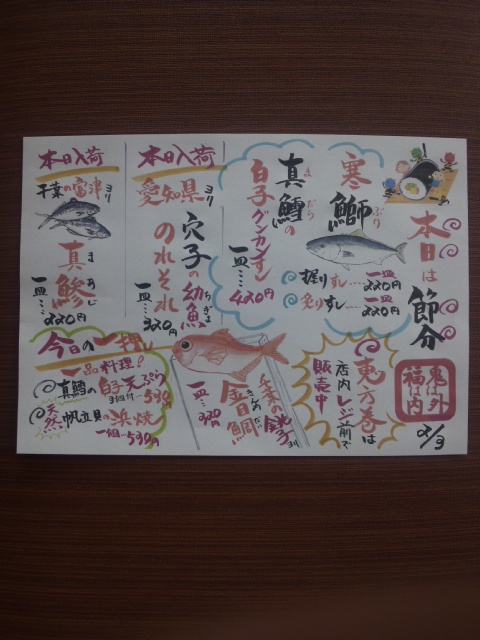 本日は節分
鬼は外
福は内
2/3
寒鰤
ぶり
握りずし…一皿220円
炙りずし…一皿220円
真鱈の
まだら
白子グンカンずし
一皿…420円
恵方巻は
店内レジ前で
販売中
本日入荷
愛知県ヨリ
穴子の幼魚
ちぎょ
のれそれ
一皿…320円
本日入荷
千葉の富津ヨリ
真鯵
まあじ
一皿…220円
千葉の銚子ヨリ
金目鯛
きんめだい
一皿…320円
今日の一押し
一品料理!
真鱈の白子天ぷら
3個付…530円
天然 帆立貝の浜焼
一個…530円